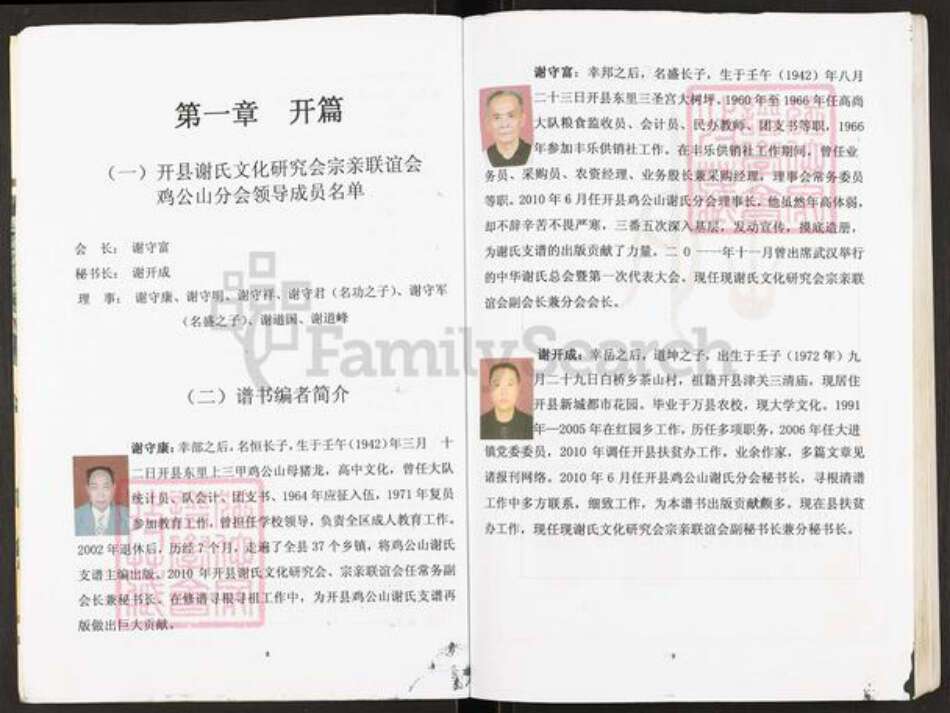 第一章 开篇
（一）开县谢氏文化研究会宗亲联谊会
鸡公山分会领导成员名单
会 长： 谢守富
秘书长： 谢开成
理 事： 谢守康、谢守明、谢守祥、谢守君（名功之子）、谢守军
（名盛之子）、谢道国、谢道峰
（二）谱书编者简介
谢守康：幸部之后，名恒长子，生于壬午(1942)年三月 十
二日开县东里上三甲鸡公山母猪龙，高中文化，曾任大队
统计员、队会计、团支书、1964年应征入伍，1971年复员
参加教育工作，曾担任学校领导，负责全区成人教育工作。
2002年退休后，历经7个月，走遍了全县37个乡镇，将鸡公山谢氏
支谱主编出版。2010年开县谢氏文化研究会、宗亲联谊会任常务副
会长兼秘书长。在修谱寻根寻祖工作中，为开县鸡公山谢氏支谱再
版做出巨大贡献。
8
谢守富：幸邦之后，名盛长子，生于壬午（1942）年八月
二十三日开县东里三圣宫大树坪。1960年至1966年任高尚
大队粮食监收员、会计员、民办教师、团支书等职，1966
年参加丰乐供销社工作。在丰乐供销社工作期间，曾任业
务员、采购员、农资经理、业务股长兼采购经理，理事会常务委员
等职。2010年6月任开县鸡公山谢氏分会理事长，他虽然年高体弱，
却不辞辛苦不畏严寒，三番五次深入基层，发动宣传，摸底造册，
为谢氏支谱的出版贡献了力量。二0一一年十一月曾出席武汉举行
的中华谢氏总会暨第一次代表大会。现任现谢氏文化研究会宗亲联
谊会副会长兼分会会长。
谢开成：幸岳之后，道坤之子，出生于壬子（1972年）九
月二十九日白桥乡茶山村，祖籍开县津关三清庙，现居住
开县新城都市花园。毕业于万县农校，现大学文化。1991
年—2005年在红园乡工作，历任多项职务，2006年任大进
镇党委委员，2010年调任开县扶贫办工作，业余作家，多篇文章见
诸报刊网络。2010年6月任开县鸡公山谢氏分会秘书长，寻根清谱
工作中多方联系，细致工作，为本谱书出版贡献颇多，现在县扶贫
办工作，现任现谢氏文化研究会宗亲联谊会副秘书长兼分秘书长。
9
FamilySearch